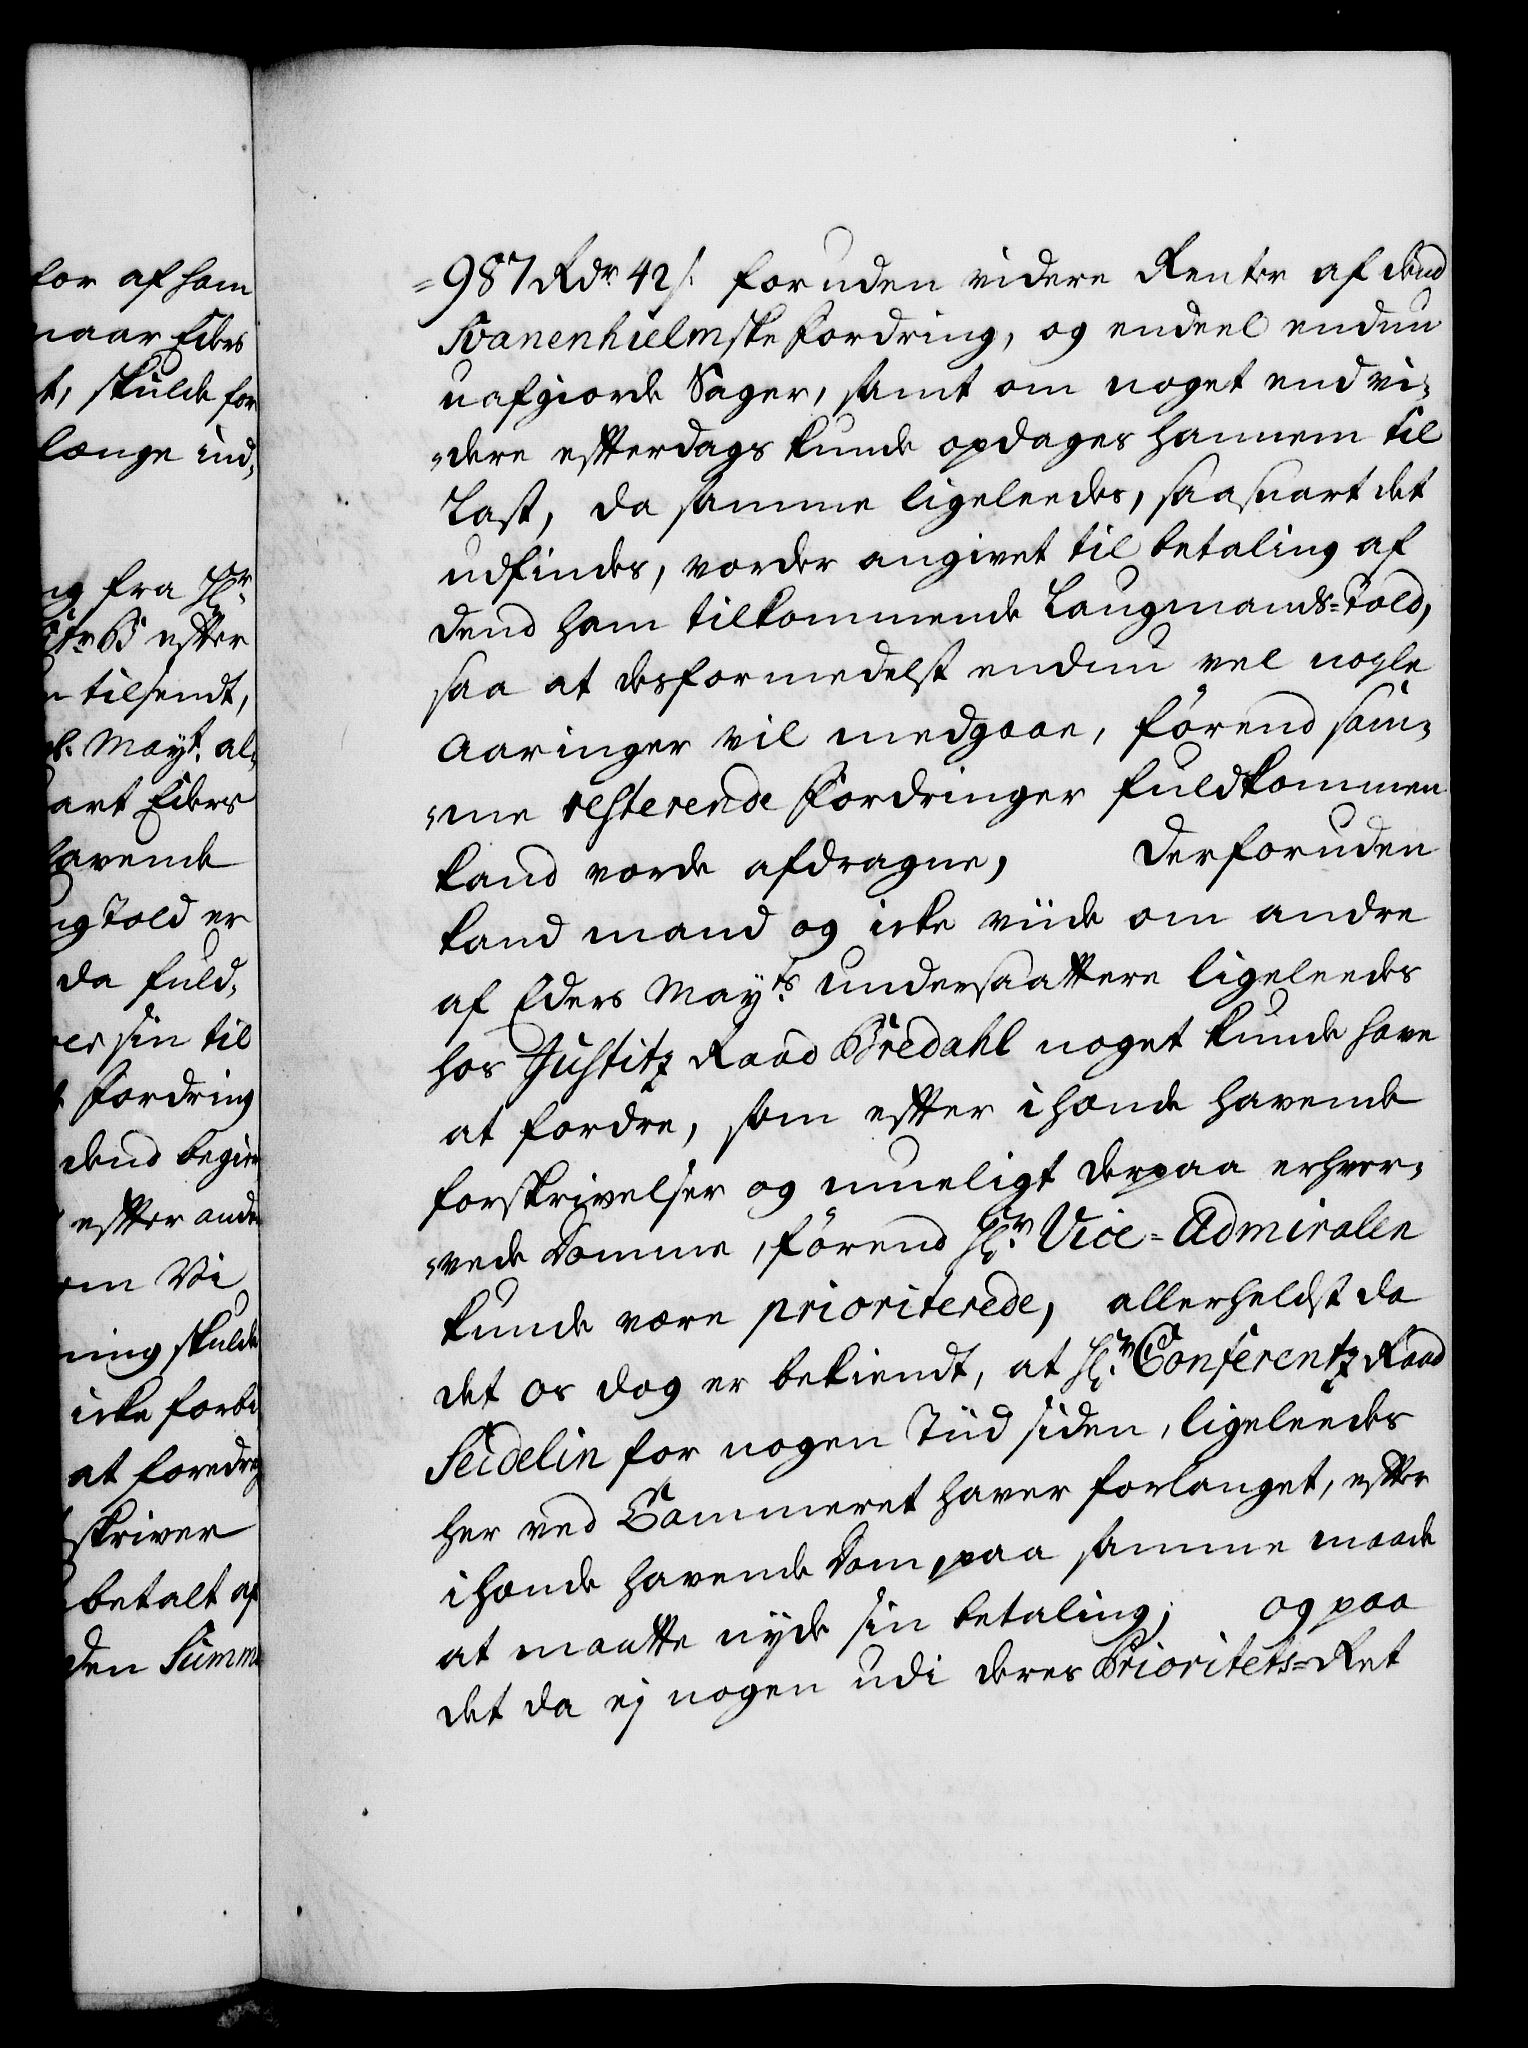 for af ham
naar Eders
t, skulde for
længe ind¬
ng fra Hr.
efter
n tilsendt,
Mayt. al¬
art Eders
havende
ng Told er
da fuld¬
er sin til
Fordring
dend begier
efter ande
om Vi
ning skulde
icke forbi
at foredrag
skriver
betalt af
den Summa
=987 Rdr. 42 s. foruden videre Renter af dend
Svanenhielmske Fordring, og endeel endnu
uafgiorde Sager, samt om noget end vi¬
„dere efterdags kunde opdages hannem til
Last, da samme ligeleedes, saasnart det
udfindes, vorder angivet til betaling af
dend ham tilkommende Laugmands=Told,
saa at desformedelst endnu vel nogle
Aaringer vil medgaae, førend sam¬
„me resterende Fordringer fuldkommen
kand vorde afdragne, Derforuden
kand mand og icke viide om andre
af Eders Mayts. undersaattere ligeleedes
hos Justitz Raad Bredahl noget kunde have
at fordre, som efter i hænde havende
forskrivelser og mueligt derpaa erhver¬
„vede Domme, førend Hr. Vice=Admiralen
kunde være prioriterede, allerheldst da
det os dog er bekiendt, at Hr. Conferentz Raad
Seidelin for nogen Tiid siden, ligeleedes
her ved Cammeret haver forlanget, efter
i hænde havende Dom, paa samme maade
at maatte nyde sin betaling; og paa
det da ej nogen udi deres Prioritets=Ret